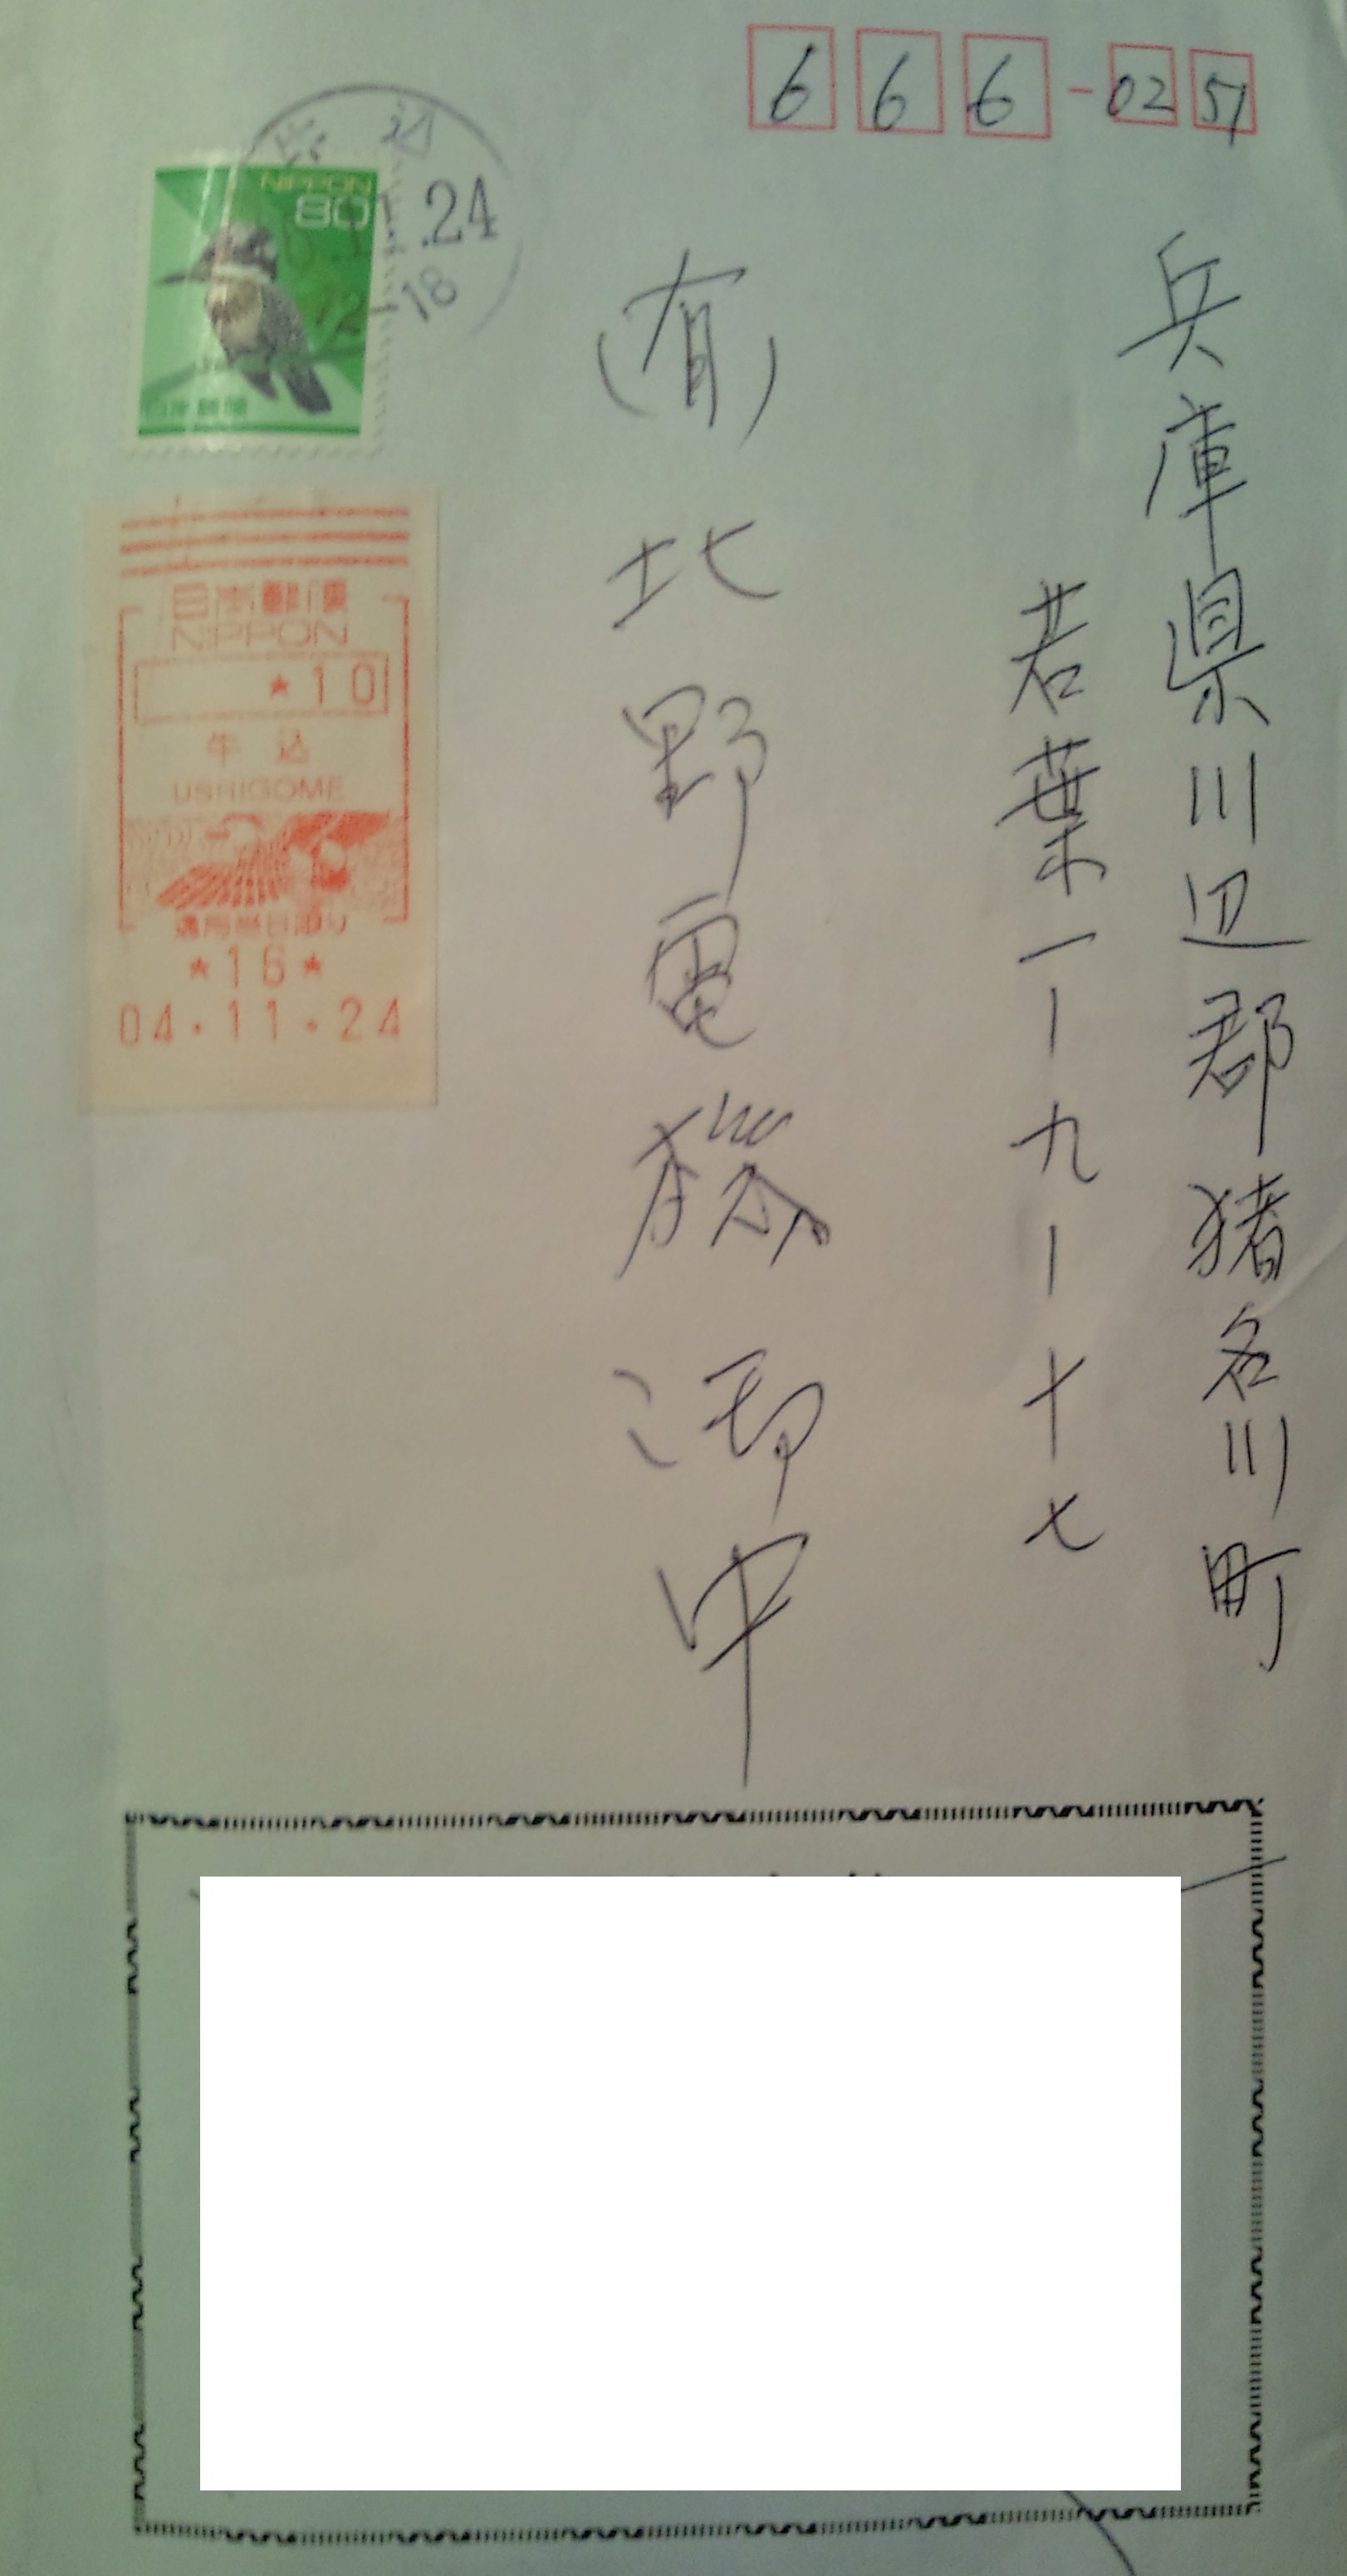 666-0251
兵庫県川辺郡猪名川町
若葉一ー九ー十七
(有)北野電機 御中
NIPPON
80
.24
18
日本郵便
NIPPON
*10
牛込
USHIGOME
*16*
04.11.24